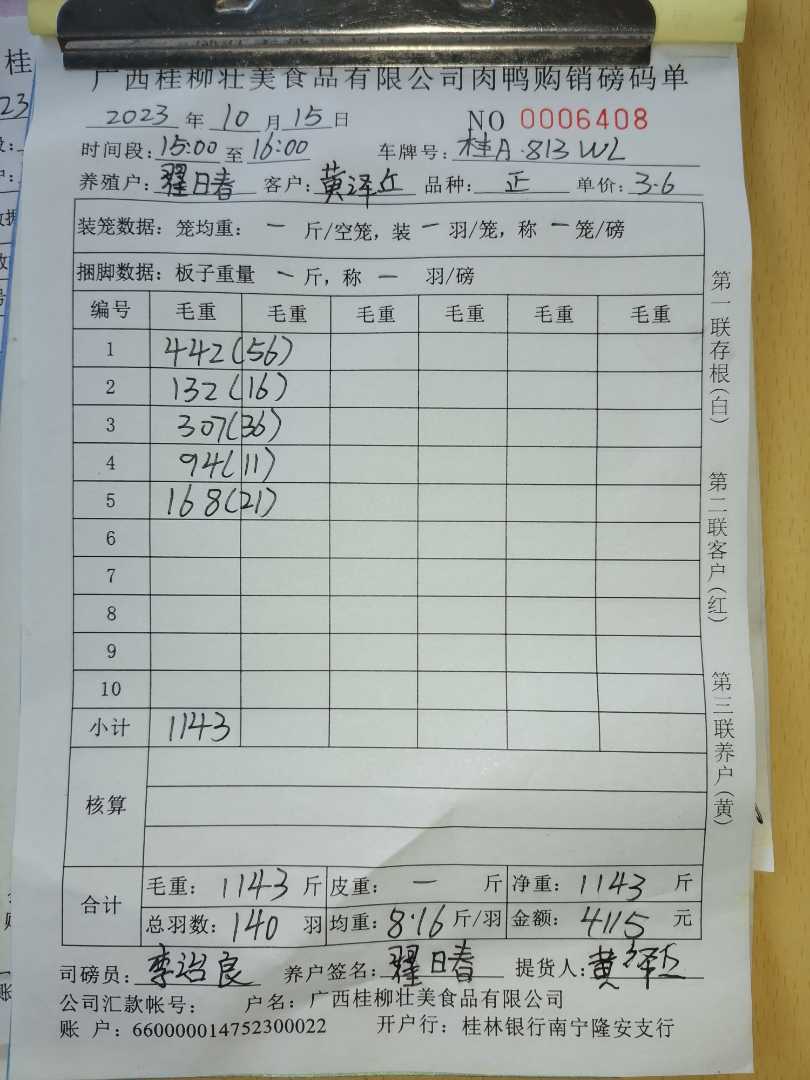 广西桂柳壮美食品有限公司肉鸭购销磅码单
2023 年 10 月 15 日 NO 0006408
时间段: 15:00 至 16:00 车牌号: 桂A·813WL
养殖户: 翟日春 客户: 黄泽丘 品种: 正 单价: 3.6
装笼数据: 笼均重: 一 斤/空笼, 装 一 羽/笼, 称 一 笼/磅
捆脚数据: 板子重量 一 斤, 称 一 羽/磅
编号 毛重 毛重 毛重 毛重 毛重 毛重
1 442(56)
2 132(16)
3 307(36)
4 94(11)
5 168(21)
6
7
8
9
10
小计 1143
核算
合计 毛重: 1143 斤 皮重: 一 斤 净重: 1143 斤
总羽数: 140 羽 均重: 8.16 斤/羽 金额: 4115 元
司磅员: 李治良 养户签名: 翟日春 提货人: 黄泽丘
公司汇款帐号: 户名: 广西桂柳壮美食品有限公司
账 户: 660000014752300022 开户行: 桂林银行南宁隆安支行
第一联存根(白)
第二联客户(红)
第三联养户(黄)
桂
23